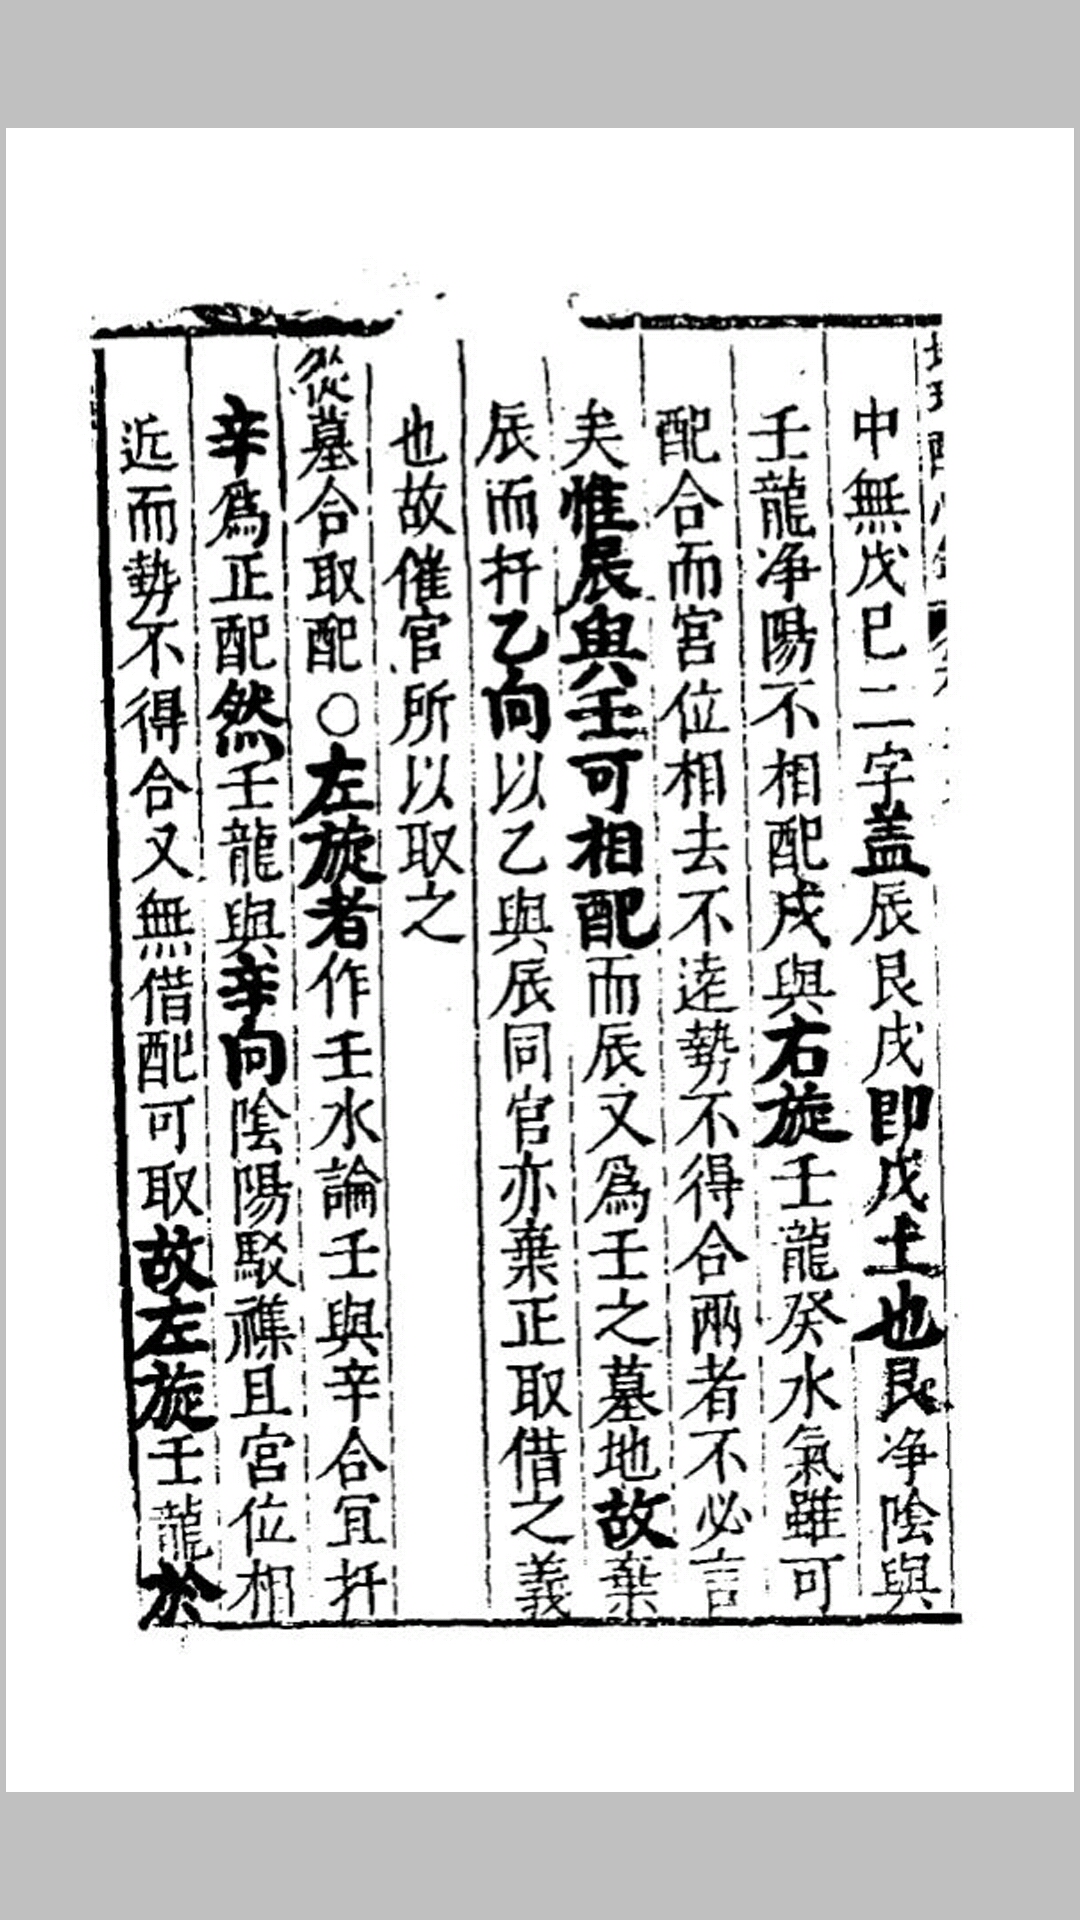 中無戊巳二字盖辰艮戌即戊土也艮净陰與
壬龍净陽不相配戌與右旋壬龍癸水氣雖可
配合而宮位相去不逺勢不得合兩者不必言
矣惟辰與壬可相配而辰又爲壬之墓地故棄
辰而扦乙向以乙與辰同官亦棄正取借之義
也故催官所以取之
從墓合取配○左旋者作壬水論壬與辛合宜扦
辛爲正配然壬龍與辛向陰陽駁襍且宮位相
近而勢不得合又無借配可取故左旋壬龍於